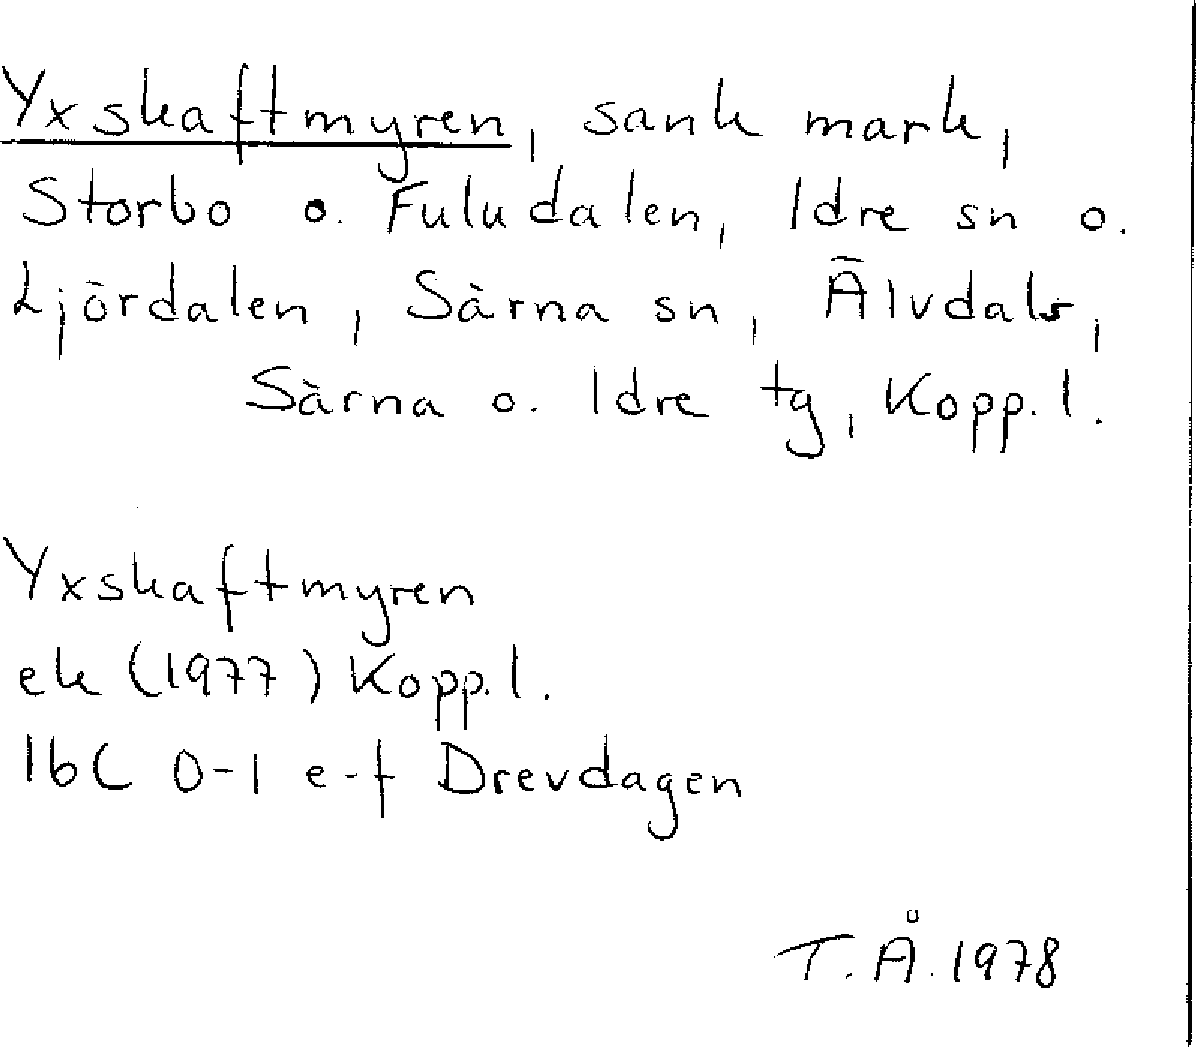 Yxskaftmyren, sank mark,
Storbo o. Fuludalen, Idre sn o.
Ljördalen, Särna sn, Älvdals,
Särna o. Idre tg, Kopp. l.
Yxskaftmyren
ek (1977) Kopp. l.
16C 0-1 e-f Drevdagen
T. Å. 1978